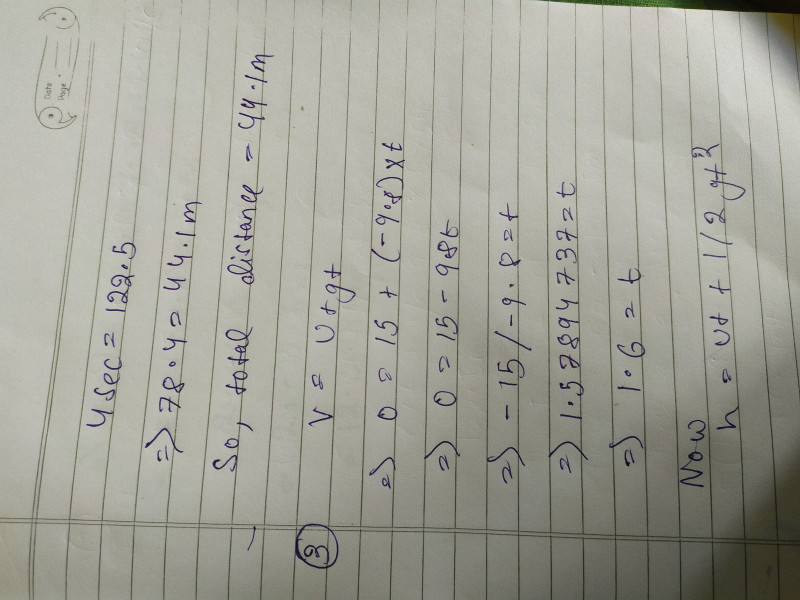 Date
Page
4sec = 122.5
=> 78.4 = 44.1m
So, total distance = 44.1m
③ v = u+gt
=> 0 = 15 + (-9.8) x t
=> 0 = 15 - 98t
=> - 15 / -9.8 = t
=> 1.57894737 = t
=> 1.6 = t
Now
h = ut + 1/2 gt²